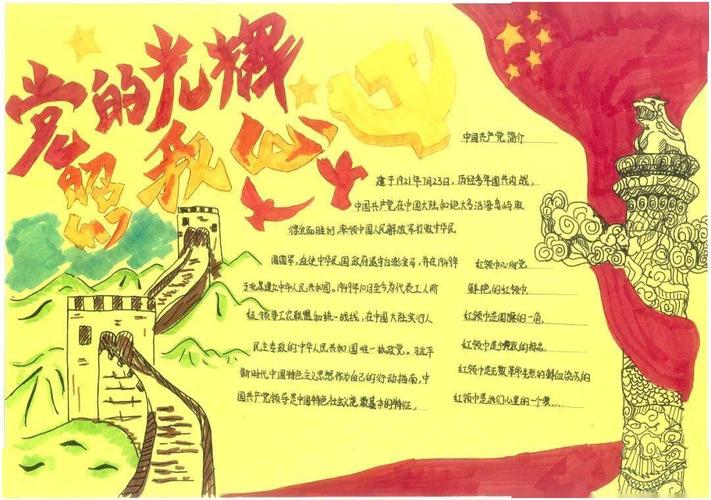 党的光辉
照我心
中国共产党简介
建于1921年7月23日，历经多年国共内战，
中国共产党在中国大陆和绝大多沿海岛屿取
得全面胜利，率领中国人民解放军打败中华民
国国军，迫使中华民国政府退守台澎金马，并在1949年
于北京建立中华人民共和国。1949年10月至今为代表工人阶
级领导工农联盟和统一战线，在中国大陆实行人
民主专政的中华人民共和国唯一执政党。习近平
新时代中国特色主义思想作为自己的行动指南，中
国共产党领导是中国特色社主义最基本的特征。
红领巾心向党
鲜艳的红领巾，
红领巾是国旗的一角，
红领巾是少先民的标志，
红领巾是无数革命先烈的鲜血染成的
红领巾是我们心里的一个梦，